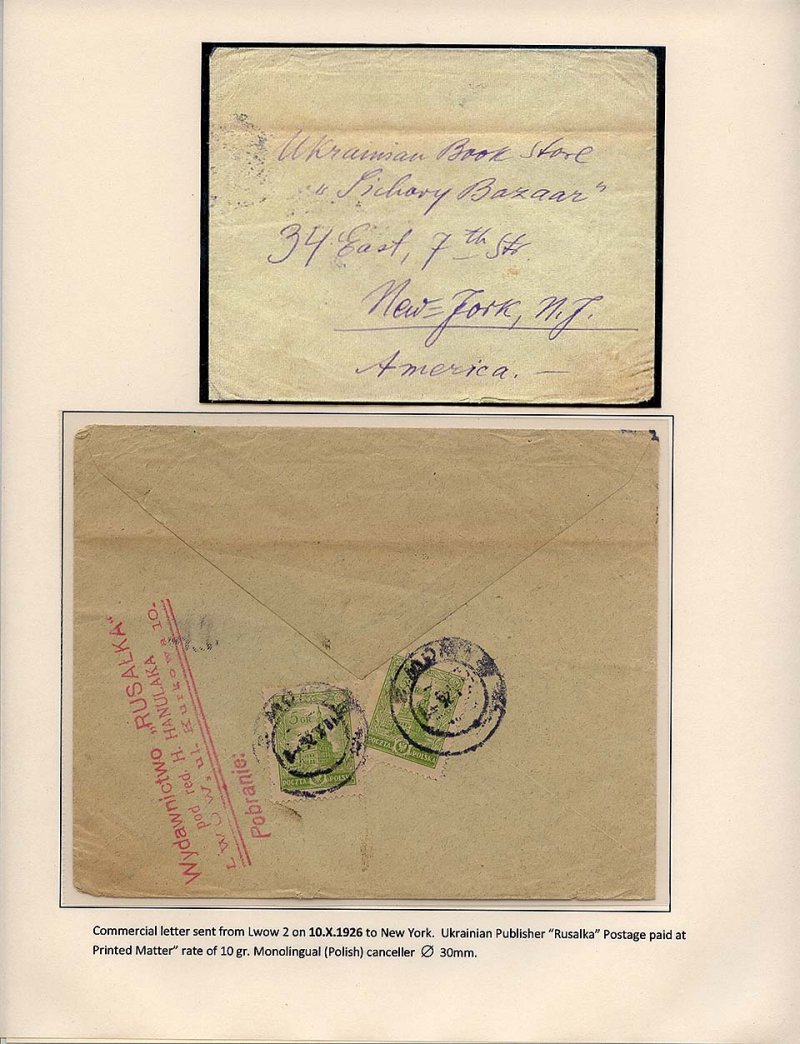 Ukrainian Book Store
"Sichovy Bazaar"
34 East, 7th Str.
New=York, N.J.
America. —
Wydawnictwo „RUSAŁKA"
pod red. H. HANULAKA
LWÓW, ul. Kurkowa 10.
Pobranie:
5 GR
POCZTA POLSKA
POCZTA POLSKA
Commercial letter sent from Lwow 2 on 10.X.1926 to New York. Ukrainian Publisher "Rusalka" Postage paid at
Printed Matter" rate of 10 gr. Monolingual (Polish) canceller ∅ 30mm.